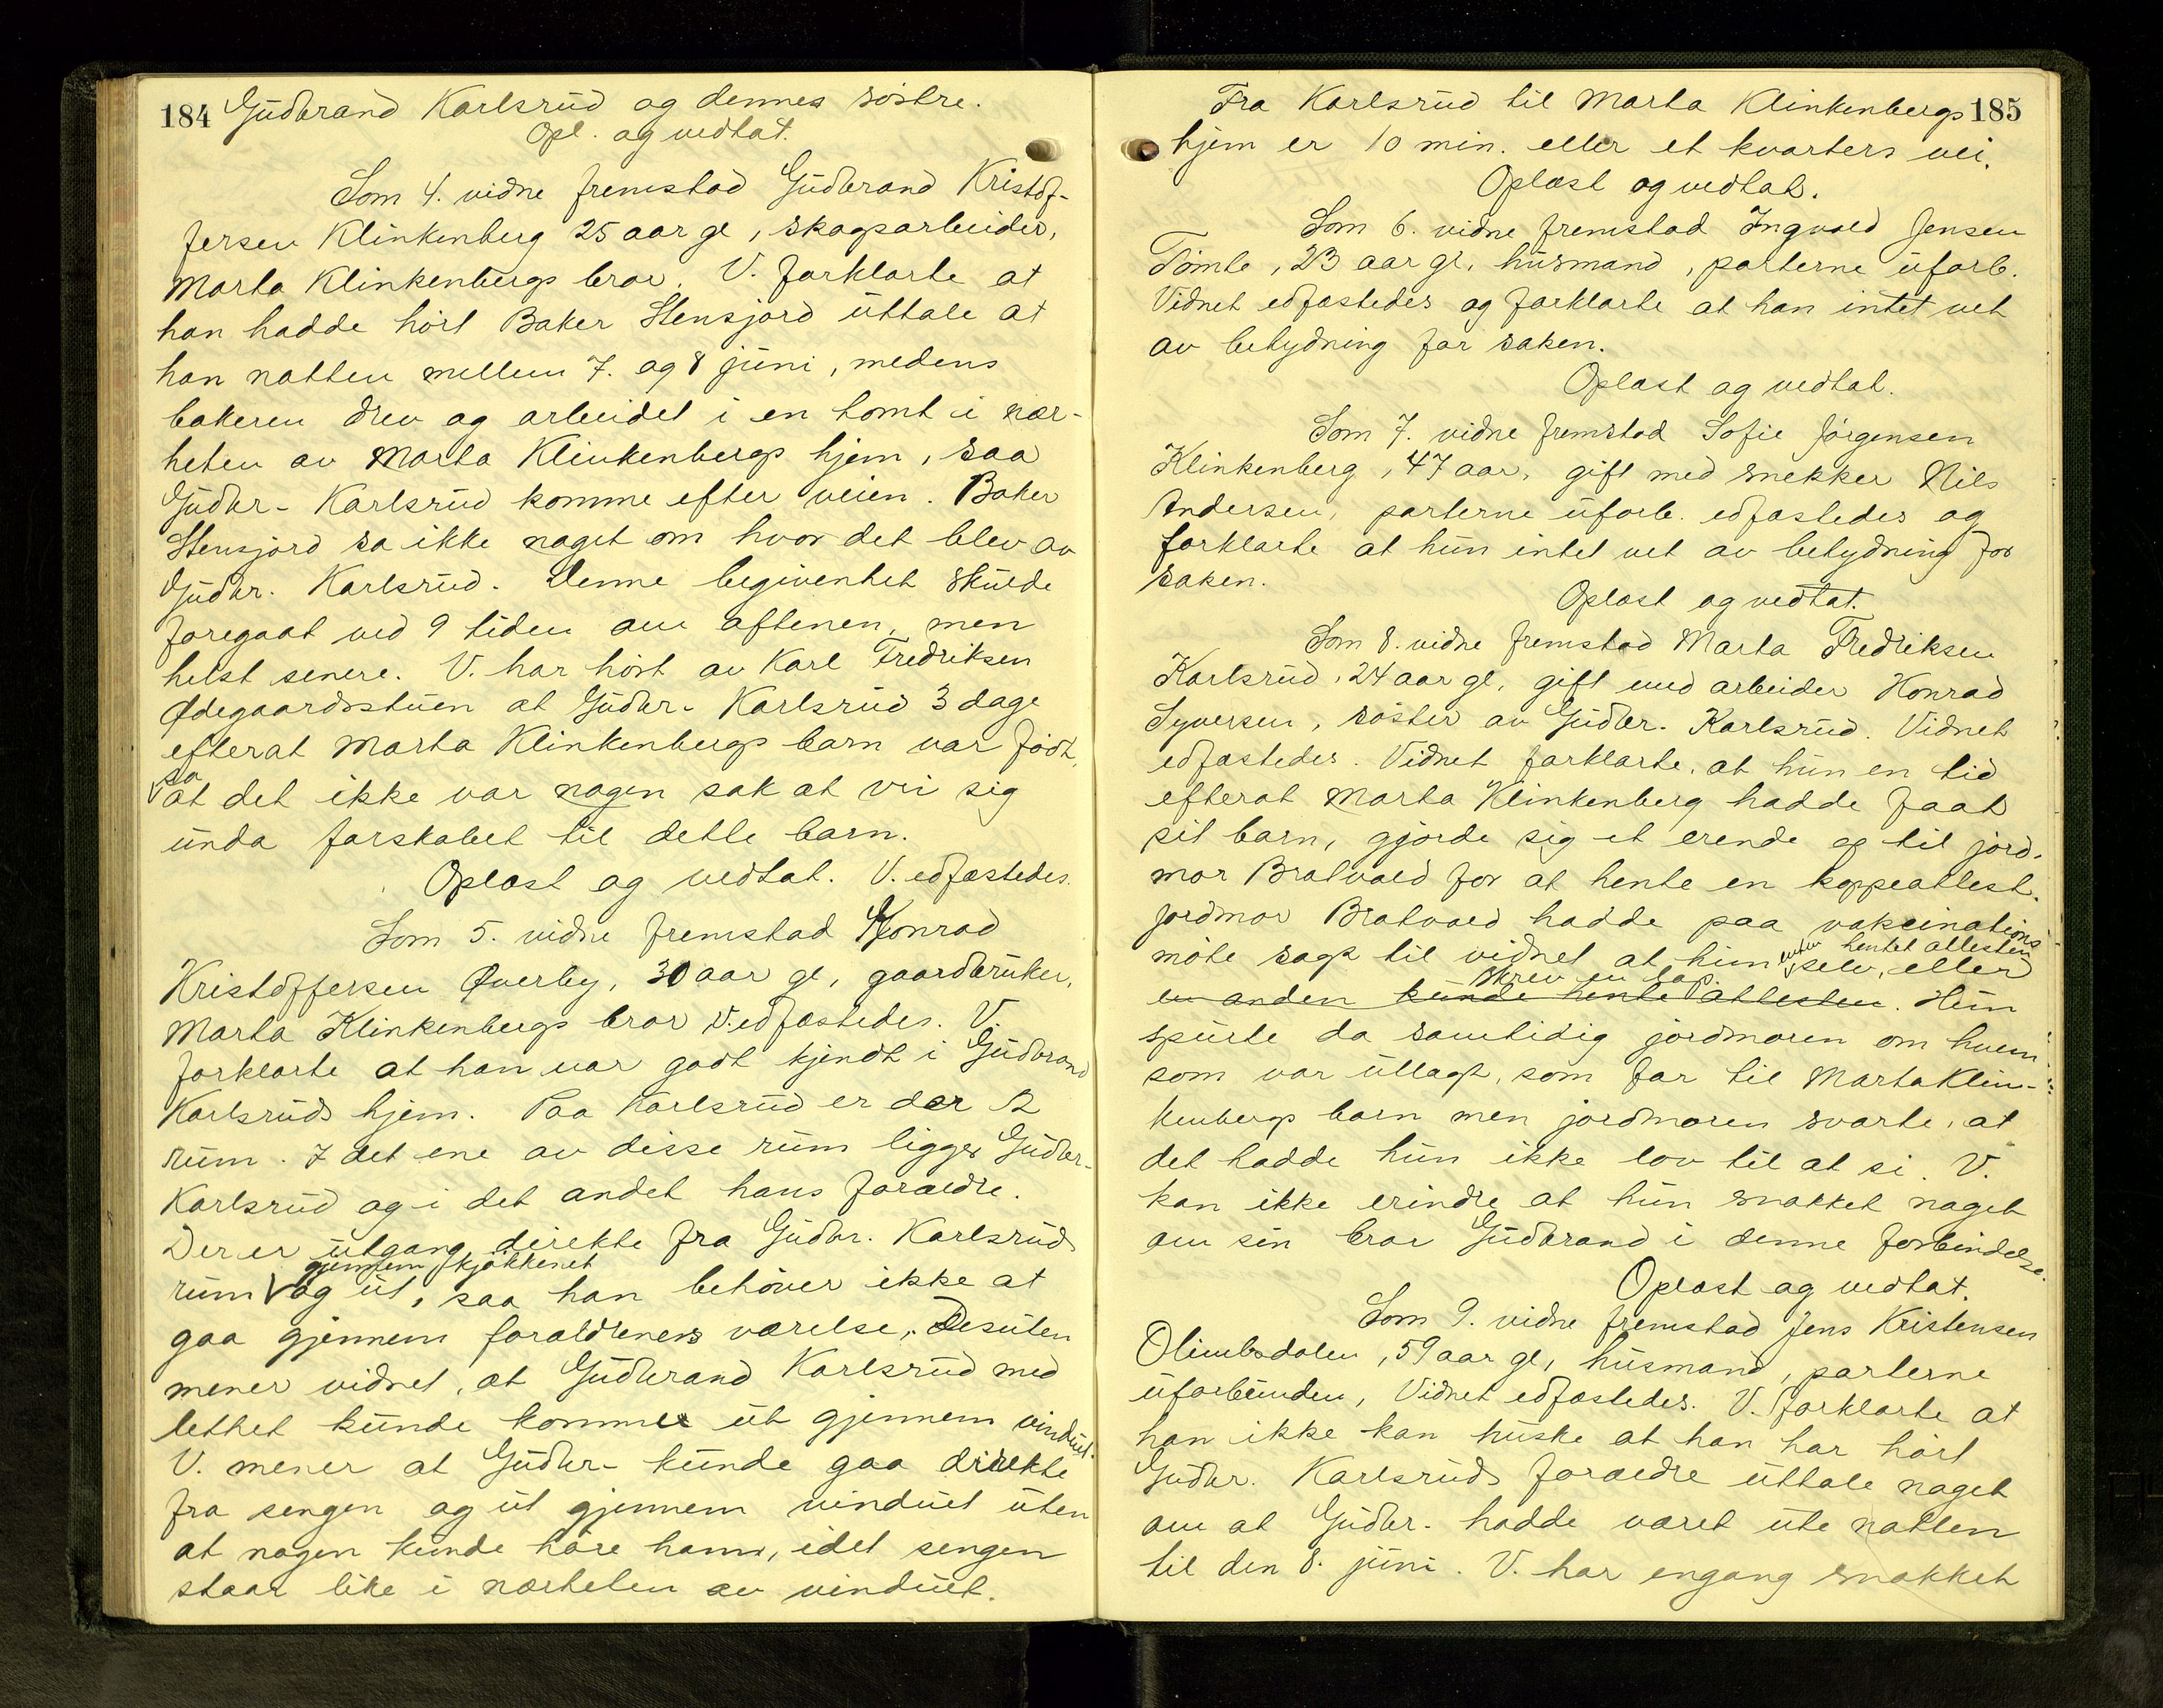 184
Gudbrand Karlsrud og dennes söstre.
Opl. og vedtat.
Som 4. vidne fremstod Gudbrand Kristof-
fersen Klinkenberg 25 aar gl, skogsarbeider,
Marta Klinkenbergs bror. V. forklarte at
han hadde hört Baker Stensjord uttale at
han natten mellem 7. og 8 juni, medens
bakeren drev og arbeidet i en tomt i nær-
heten av Marta Klinkenbergs hjem, saa
Gudbr. Karlsrud komme efter veien. Baker
Stensjord sa ikke noget om hvor det blev av
Gudbr. Karlsrud. Denne begivenhet skulde
foregaat ved 9 tiden om aftenen, men
helst senere. V. har hört av Karl Fredriksen
Ødegaardsstuen at Gudbr. Karlsrud 3 dage
efterat Marta Klinkenbergs barn var födt,
sa
at det ikke var nogen sak at vri sig
unda farskabet til dette barn.
Oplæst og vedtat. V. edfæstedes.
Som 5. vidne fremstod Konrad
Kristoffersen Överby, 30 aar gl, gaardbruker,
Marta Klinkenbergs bror V. edfæstedes. V.
forklarte at han var godt kjendt i Gudbrand
Karlsruds hjem. Paa Karlsrud er der 2
rum. I det ene av disse rum ligger Gudbr.
Karlsrud og i det andet hans forældre.
Der er utgang direkte fra Gudbr. Karlsruds
gjennem kjökkenet
rum og ut, saa han behöver ikke at
gaa gjennem forældrenes værelse. Desuten
mener vidnet, at Gudbrand Karlsrud med
lethet kunde komme ut gjennem vinduet.
V. mener at Gudbr. kunde gaa direkte
fra sengen og ut gjennem vinduet uten
at nogen kunde höre ham, idet sengen
staar like i nærheten av vinduet.
185
Fra Karlsrud til Marta Klinkenbergs
hjem er 10 min. eller et kvarters vei.
Oplæst og vedtat.
Som 6. vidne fremstod Ingvald Jensen
Tömte, 23 aar gl, husmand, parterne uforb.
Vidnet edfæstedes og forklarte at han intet vet
av betydning for saken.
Oplæst og vedtat.
Som 7. vidne fremstod Sofie Jörgensen
Klinkenberg, 47 aar, gift med snekker Nils
Andersen, parterne uforb. edfæstedes og
forklarte at hun intet vet av betydning for
saken.
Oplæst og vedtat.
Som 8. vidne fremstod Marta Fredriksen
Karlsrud, 24 aar gl, gift med arbeider Konrad
Syversen, söster av Gudbr. Karlsrud. Vidnet
edfæstedes. Vidnet forklarte, at hun en tid
efterat Marta Klinkenberg hadde faat
sit barn, gjorde sig et erende op til jord-
mor Bratvold for at hente en koppeattest.
Jordmor Bratvold hadde paa vakcinations-
enten hentet attesten
möte sagt til vidnet at hun selv, eller
skrev en lap.
en anden kunde hente attesten. Hun
spurte da samtidig jordmoren om hvem
som var utlagt, som far til Marta Klin-
kenbergs barn men jordmoren svarte, at
det hadde hun ikke lov til at si. V.
kan ikke erindre at hun snakket noget
om sin bror Gudbrand i denne forbindelse.
Oplæst og vedtat.
Som 9. vidne fremstod Jens Kristensen
59 aar gl, husmand, parterne
uforbunden, Vidnet edfæstedes. V. forklarte at
han ikke kan huske at han har hört
Gudbr. Karlsruds forældre uttale noget
om at Gudbr. hadde været ute natten
til den 8. juni. V. har engang snakket